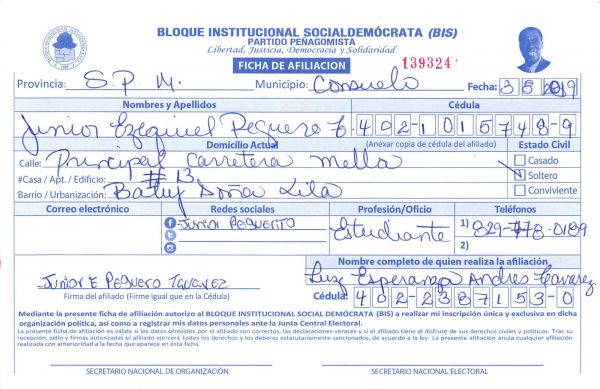 BLOQUE INSTITUCIONAL SOCIALDEMÓCRATA (BIS)
PARTIDO PEÑAGOMISTA
Libertad, Justicia, Democracia y Solidaridad
FICHA DE AFILIACION 139324
Provincia: S.P.M. Municipio: Consuelo Fecha: 3 5 2019
Nombres y Apellidos Cédula
Junior Ezequiel Peguero T. 402-1015748-9
Domicilio Actual (Anexar copia de cédula del afiliado) Estado Civil
Calle: Principal Carretera Mella Casado
#Casa / Apt. / Edificio: #13 Soltero
Barrio / Urbanización: Batey Doña Lila Conviviente
Correo electrónico Redes sociales Profesión/Oficio Teléfonos
Junior Peguerito Estudiante 1) 829-778-0189
2)
Nombre completo de quien realiza la afiliación
Junior E Peguero Tavarez Luz Esperanza Andres Tavarez
Firma del afiliado (Firme igual que en la Cédula) Cédula: 402-2387153-0
Mediante la presente ficha de afiliación autorizo al BLOQUE INSTITUCIONAL SOCIAL DEMÓCRATA (BIS) a realizar mi inscripción única y exclusiva en dicha
organización política, así como a registrar mis datos personales ante la Junta Central Electoral.
La presente ficha de afiliación es válida si los datos ofrecidos por el afiliado son correctos, las declaraciones veraces y si el afiliado tiene el disfrute de sus derechos civiles y políticos. Tras su
recepción, sello y firmas autorizadas el afiliado ejercerá todos los derechos y los deberes estatutariamente sancionados, de acuerdo a la ley. La presente afiliación anula cualquier afiliación
realizada con anterioridad a la fecha que aparece en esta ficha.
SECRETARIO NACIONAL DE ORGANIZACIÓN SECRETARIO NACIONAL ELECTORAL